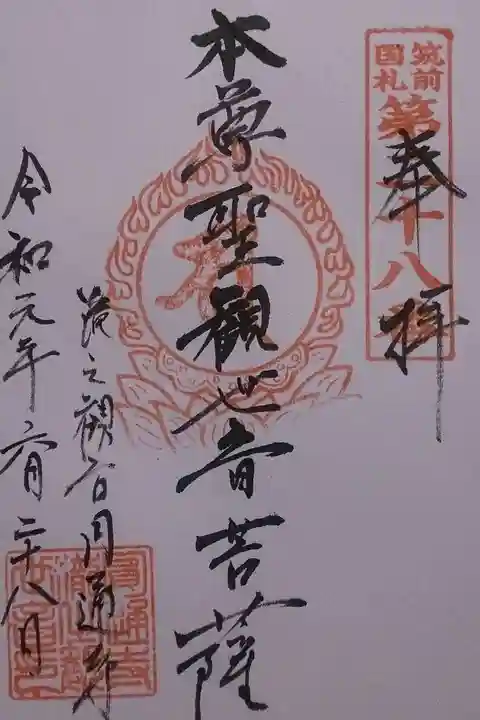 筑前
国札
第十八番
奉拝
本尊聖觀世音菩薩
滝之観音円通寺
令和元年六月二十八日